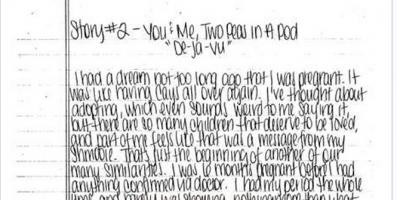 Story #2 - You & Me, Two Peas In A Pod
"De-Ja-Vu"
I had a dream not too long ago that I was pregnant. It
was like having Cays all over again. I've thought about
adopting, which even sounds weird to me saying it,
but there are so many children that deserve to be loved,
and part of me feels like that was a message from my
That's just the beginning of another of our
many similarities. I was 6 months pregnant before I had
anything confirmed via doctor. I had my period the whole
time, and barely was showing, nothing more than what